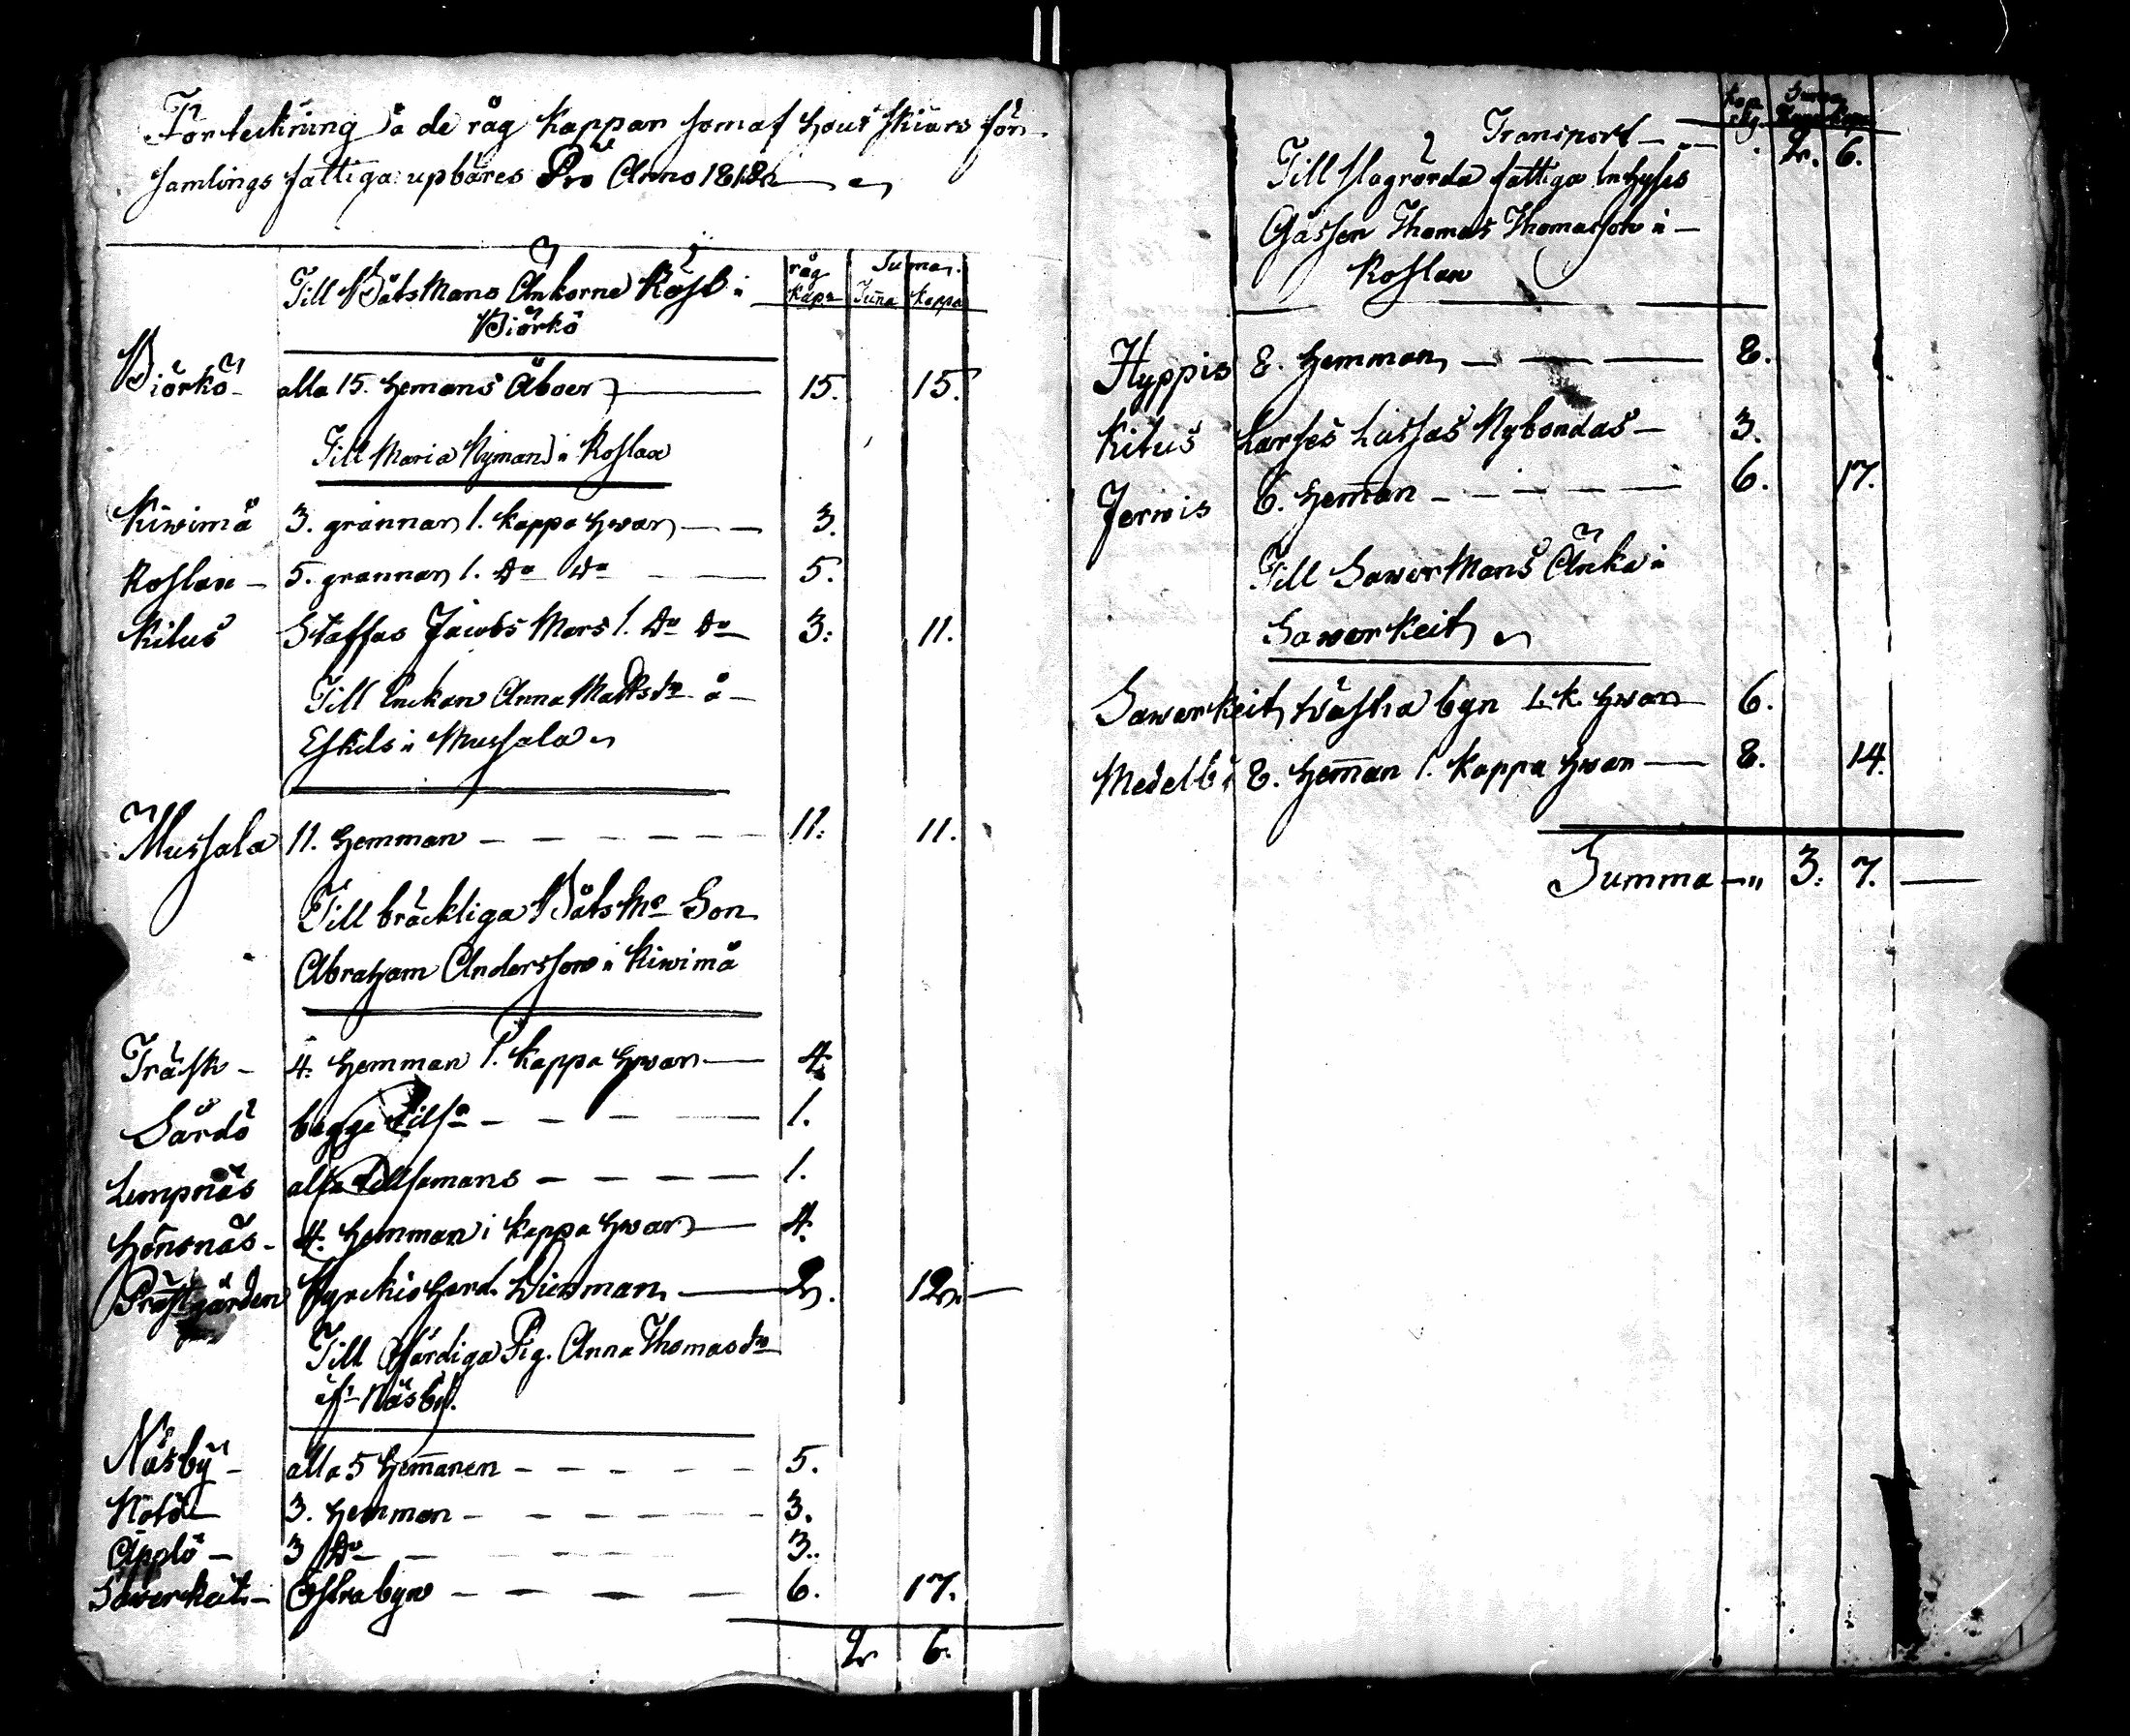 Förteckning å de råg Kappar som af Houtskiärs för-
samlings fattiga upbäres Pro Anno 1818
råg Kapr Suma. Tuña Kappa
Till Båtsmans Änkorne Röst i
Biörkö
Biörkö - alla 15. Hemans Åboer 15. 15.
Till Maria Nyman i Roslax
Kiwimå 3. grannar 1. kappa hwar 3.
Roslax - 5. grannar 1. Do Do 5.
Kitus Staffas Jacobs Mars 1. Do Do 3: 11.
Till Enkan Anna Mattsdr å
Eskils i Mussala
Mussala 11. Hemman 11: 11.
Till bräckliga Båtsms Son
Abraham Andersson i Kiwimå
Träsk - 4. Hemman 1. Kappa hwar 4.
Särdö begge Tillsa 1.
Lempnäs alla Tillsamans 1.
Hönsnäs - 4. Hemman i kappa hwar 4.
Prästgården Kyrckio Herd. Widman 2. 12.
Till Ofärdiga Pig. Anna Thomasdr
if. Näsby.
Näsby - alla 5 Hemanen 5.
Nötö 3. Hemman 3.
Äpplö - 3 Do 3.
Sawerkeit - Östra byn 6. 17.
2 6.
Transport 2. 6.
Till slagrörda fattiga Inhyses
Gåssen Thomas Thomasson i
Roslax
Hyppis 8. Hemman 8.
Kitus Larses Lassas Nybondas - 3.
Jerwis 6. Heman 6. 17.
Till Sawer Mans Änka i
Sawerkeit
Sawerkeit wästra byn 1. k. hwar 6.
Medelby 8. Heman 1. Kappa hwar 8. 14.
Summa 3: 7.